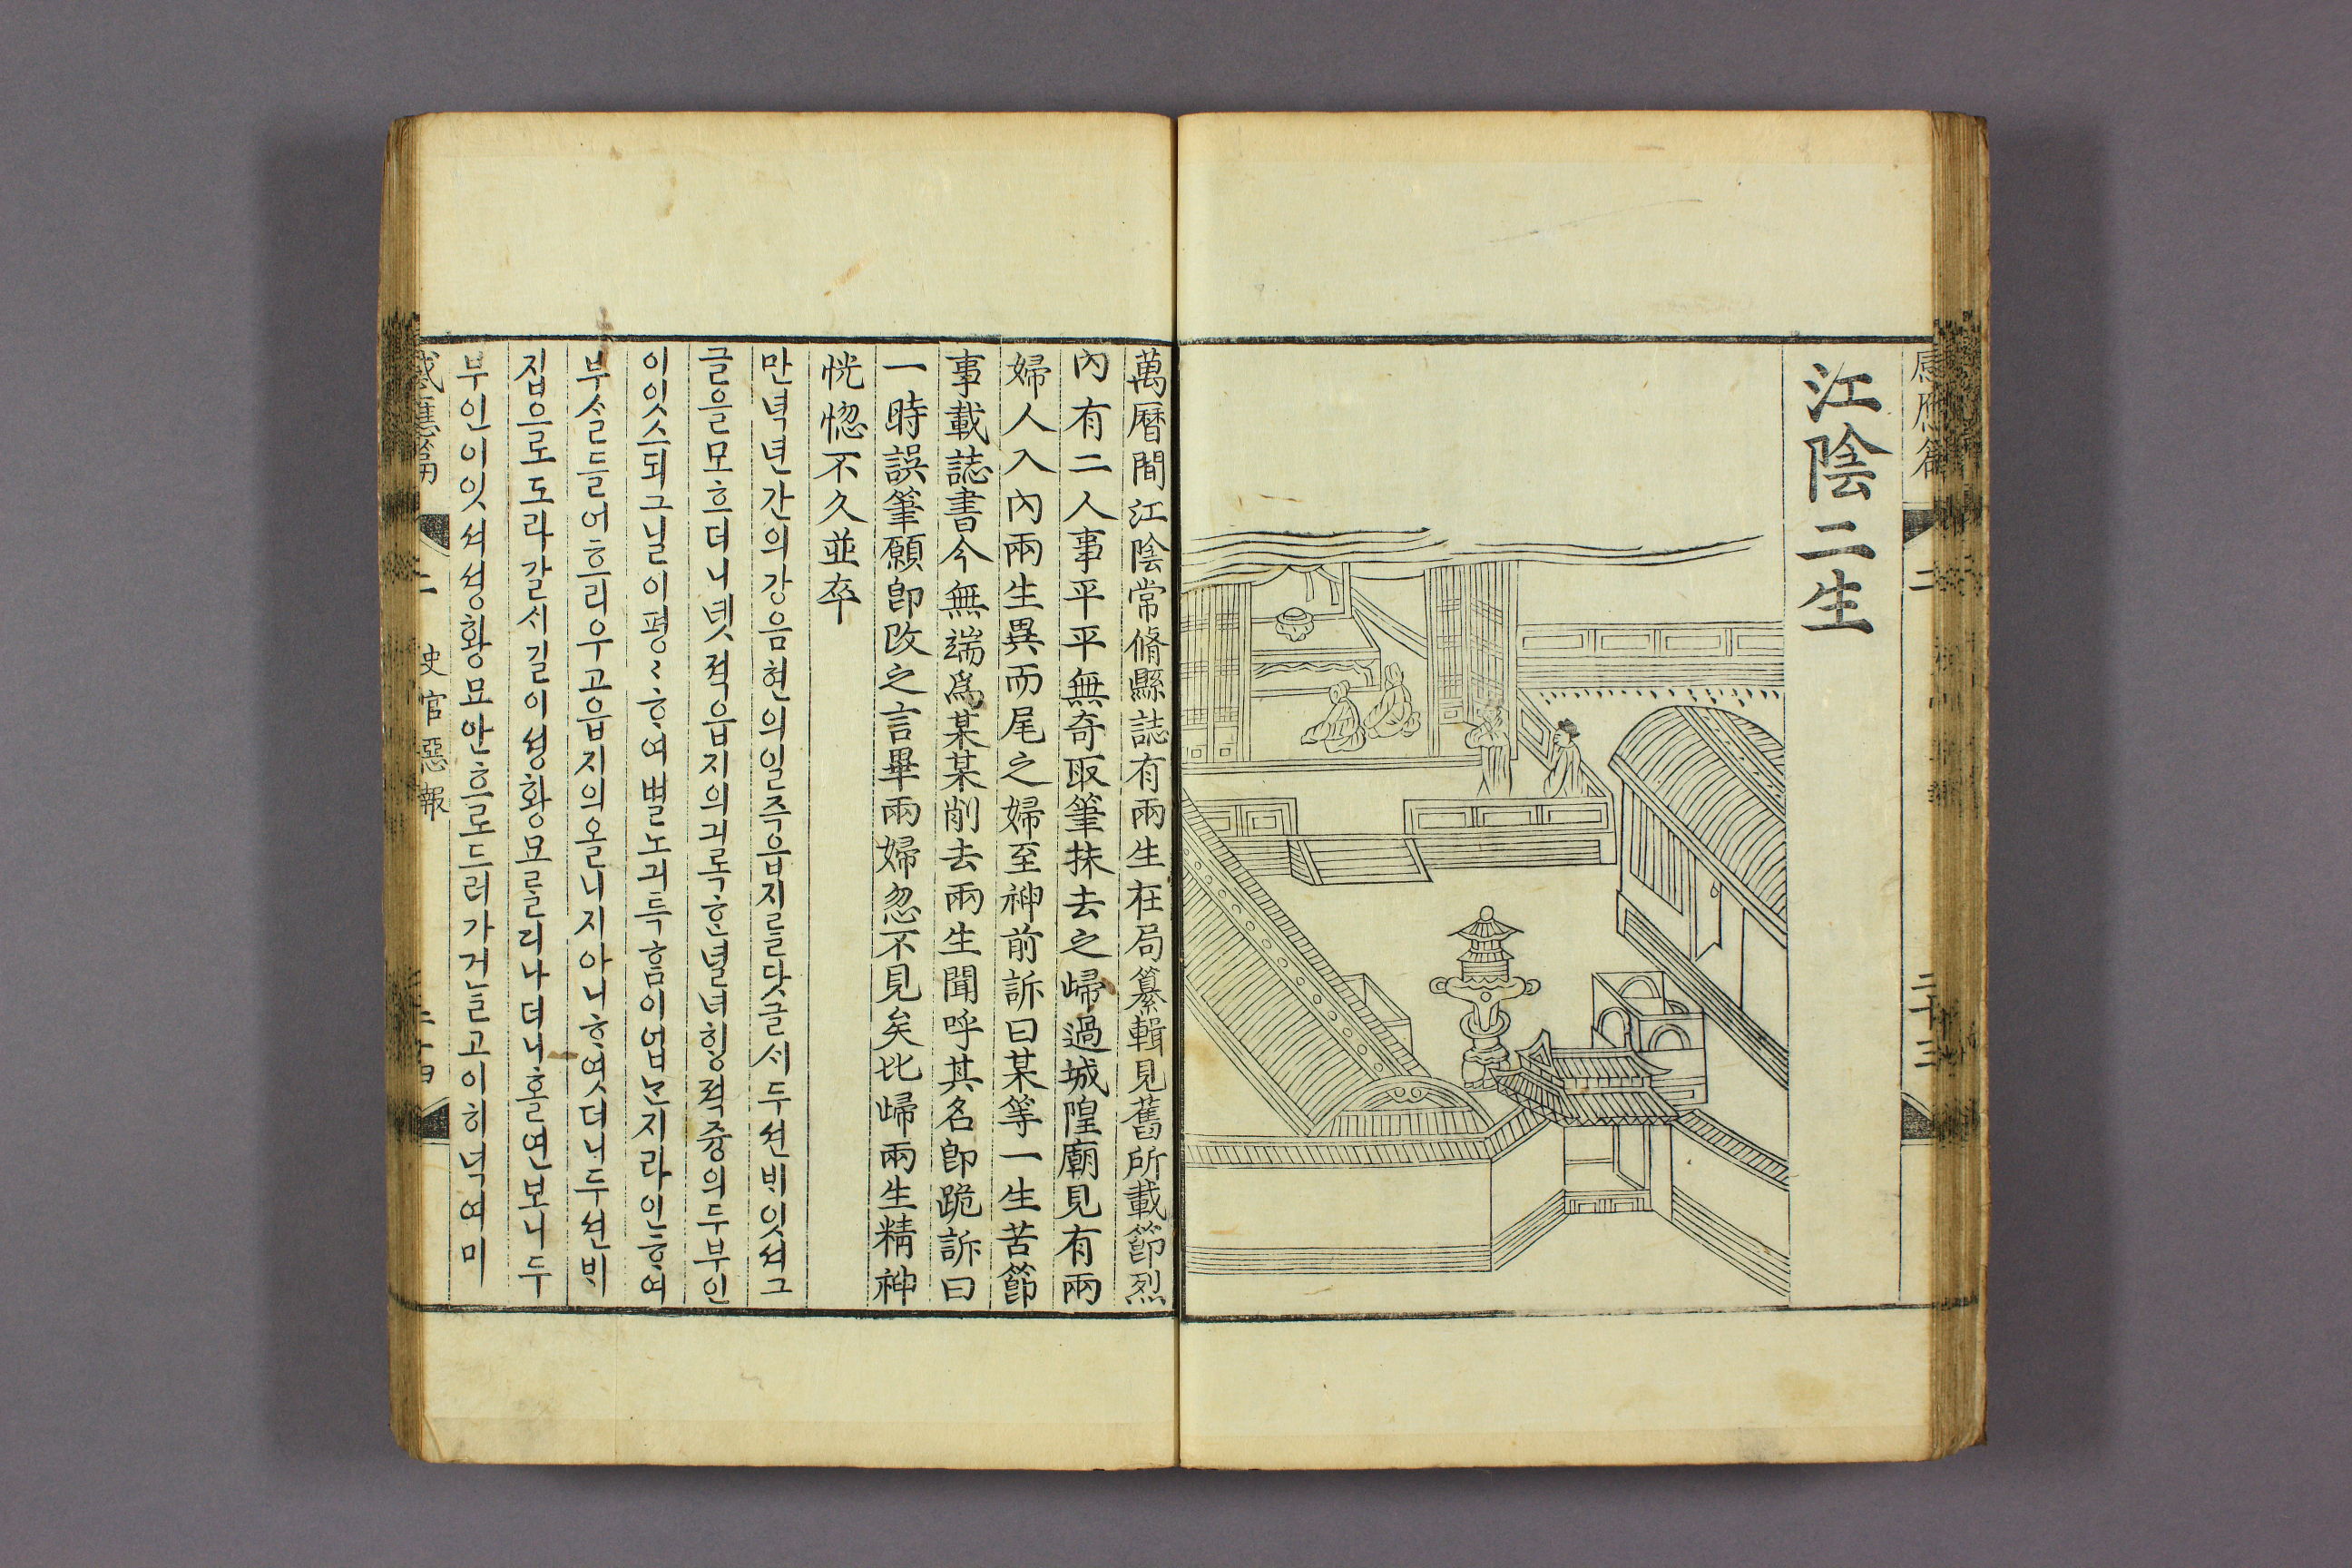 江陰二生
萬曆間江陰常脩縣誌有兩生在局纂輯見舊所載節烈
內有二人事平平無奇取筆抹去之歸過城隍廟見有兩
婦人入內兩生異而尾之婦至神前訴曰某等一生苦節
事載誌書今無端爲某某削去兩生聞呼其名卽跪訴曰
一時誤筆願卽改之言畢兩婦忽不見矣比歸兩生精神
恍惚不久並卒
만녁년간의강음현의일죽읍지를닷글ᄉᆡ두션ᄇᆡ잇셔그
글을모흐더니녯젹읍지의긔록ᄒᆞᆫ녈녀ᄒᆡᆼ젹즁의두부인
이잇스되그닐이평〻ᄒᆞ여별노긔특ᄒᆞᆷ이업ᄂᆞᆫ지라인ᄒᆞ여
부ᄉᆞᆯ들어흐리우고읍지의올니지아니ᄒᆞ엿더니두션ᄇᆡ
집으로도라갈ᄉᆡ길이셩황묘를리나더니홀연보니두
부인이잇셔셩황묘안흐로드러가거ᄂᆞᆯ고이히녁여미
感應篇 二 史官惡報 二十四
二 二十三